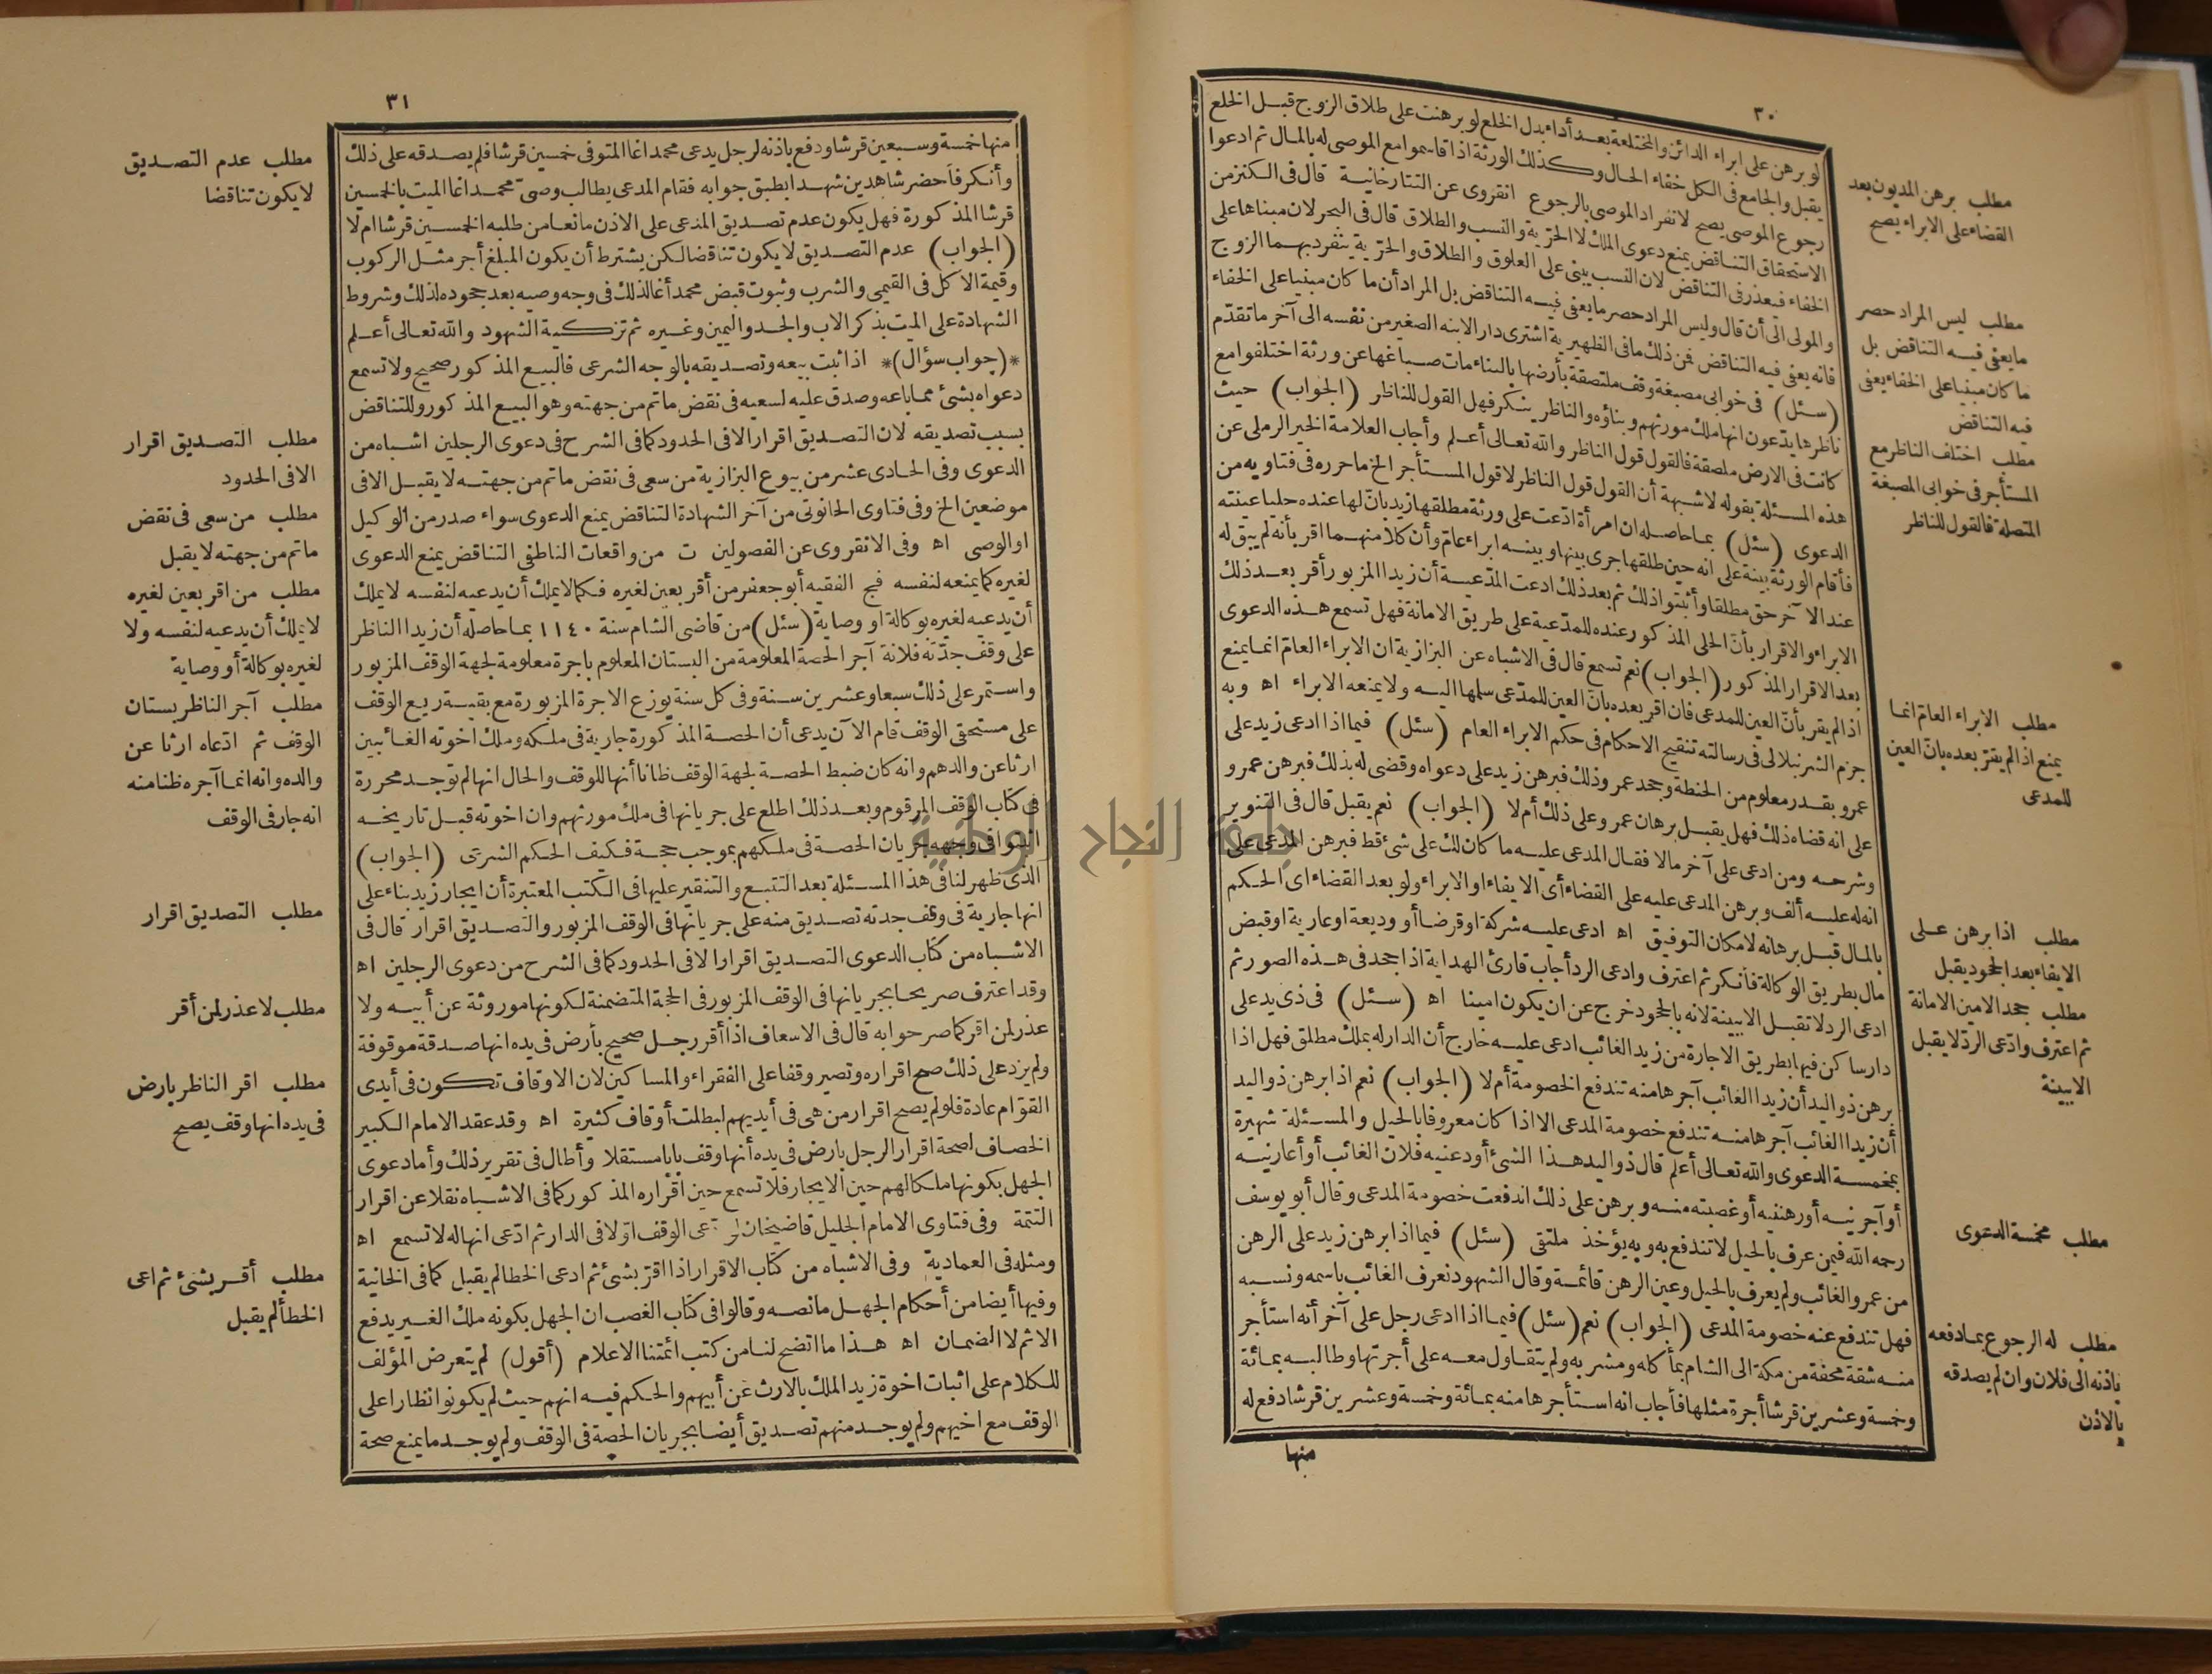 ٣٠
لو برهن على ابراء الدائن والمختلعة بعد أداء بدل الخلع لو برهنت على طلاق الزوج قبل الخلع
يقبل والجامع فى الكل خفاء الحال وكذلك الورثة اذا قاسموا مع الموصى له بالمال ثم ادعوا
رجوع الموصى يصح لانفراد الموصى بالرجوع انقروى عن التتارخانية قال فى الكنز من
الاستحقاق التناقض يمنع دعوى الملك لا الحرّية والنسب والطلاق قال فى البحر لان مبناها على
الخفاء فيعذر فى التناقض لان النسب يبنى على العلوق والطلاق والحرّية يتفرد بهما الزوج
والمولى الى أن قال وليس المراد حصر ما يعفى فيه التناقض بل المراد أن ما كان مبنيا على الخفاء
فانه يعفى فيه التناقض فمن ذلك ما فى الظهيرية اشترى دار الابنه الصغير من نفسه الى آخر ما تقدّم
(سئل) فى خوابى مصبغة وقف ملتصقة بأرضها بالبناء مات صباغها عن ورثة اختلفوا مع
ناظرها يدّعون انها ملك مورثهم وبناؤه والناظر ينكر فهل القول للناظر (الجواب) حيث
كانت فى الارض ملصقة فالقول قول الناظر والله تعالى أعلم وأجاب العلامة الخير الرملى عن
هذه المسئلة بقوله لا شبهة أن القول قول الناظر لا قول المستأجر الخ ما حرره فى فتاويه من
الدعوى (سئل) بما حاصله ان امرأة ادّعت على ورثة مطلقها زيد بانّ لها عنده حليا عينته
فأقام الورثة بينة على انه حين طلقها جرى بينها وبينه ابراء عامّ وأن كلا منهما اقر بأنه لم يبق له
عند الآخر حق مطلقا وأثبتوا ذلك ثم بعد ذلك ادعت المدّعية أن زيدا المزبور أقر بعد ذلك
الابراء والاقرار بأنّ الحلى المذكور عنده للمدّعية على طريق الامانة فهل تسمع هذه الدعوى
بعد الاقرار المذكور (الجواب) نعم تسمع قال فى الاشباه عن البزازية ان الابراء العامّ انما يمنع
اذا لم يقر بأنّ العين للمدعى فان اقر بعده بانّ العين للمدّعى سلمها اليه ولا يمنعه الابراء اه وبه
جزم الشرنبلالى فى رسالته تنقيح الاحكام فى حكم الابراء العام (سئل) فيما اذا ادعى زيد على
عمرو بقدر معلوم من الحنطة وجحد عمرو ذلك فبرهن زيد على دعواه وقضى له بذلك فبرهن عمرو
على انه قضاه ذلك فهل يقبل برهان عمرو على ذلك أم لا (الجواب) نعم يقبل قال فى التنوير
وشرحه ومن ادعى على آخر مالا فقال المدعى عليه ما كان لك علىّ شئ قط فبرهن المدعى على
انه له عليه ألف وبرهن المدعى عليه على القضاء أى الايفاء او الابراء ولو بعد القضاء اى الحكم
بالمال قبل برهانه لامكان التوفيق اه ادعى عليه شركة او قرضا أو وديعة او عارية او قبض
مال بطريق الوكالة فأنكر ثم اعترف وادعى الرد أجاب قارئ الهداية اذا جحد فى هذه الصور ثم
ادعى الرد لا تقبل الا ببينة لانه بالجحود خرج عن ان يكون امينا اه (سئل) فى ذى يد على
دار ساكن فيها بطريق الاجارة من زيد الغائب ادعى عليه خارج أن الدار له بملك مطلق فهل اذا
برهن ذو اليد أن زيدا الغائب آجرها منه تندفع الخصومة أم لا (الجواب) نعم اذا برهن ذو اليد
أن زيدا الغائب آجرها منه تندفع خصومة المدعى الا اذا كان معروفا بالحيل والمسئلة شهيرة
بمخمسة الدعوى والله تعالى أعلم قال ذو اليد هذا الشئ أودعنيه فلان الغائب أو أعارنيه
أو آجرنيه أو رهننيه أو غصبته منه وبرهن على ذلك اندفعت خصومة المدعى وقال أبو يوسف
رحمه الله فيمن عرف بالحيل لا تندفع به وبه يؤخذ ملتقى (سئل) فيما اذا برهن زيد على الرهن
من عمرو الغائب ولم يعرف بالحيل وعين الرهن قائمة وقال الشهود نعرف الغائب باسمه ونسبه
فهل تندفع عنه خصومة المدعى (الجواب) نعم (سئل) فيما اذا ادعى رجل على آخر أنه استأجر
منه شقة محفة من مكة الى الشام بمأكله ومشربه ولم يتقاول معه على أجرتها وطالبه بمائة
وخمسة وعشرين قرشا أجرة مثلها فأجاب انه استأجرها منه بمائة وخمسة وعشرين قرشا دفع له
منها
مطلب برهن المديون بعد
القضاء على الابراء يصح
مطلب ليس المراد حصر
ما يعفى فيه التناقض بل
ما كان مبنيا على الخفاء يعفى
فيه التناقض
مطلب اختلف الناظر مع
المستأجر فى خوابى المصبغة
المتصلة فالقول للناظر
مطلب الابراء العامّ انما
يمنع اذا لم يقرّ بعده بانّ العين
للمدعى
مطلب اذا برهن على
الايفاء بعد الجحود يقبل
مطلب جحد الامين الامانة
ثم اعترف وادّعى الردّ لا يقبل
الا ببينة
مطلب مخمسة الدعوى
مطلب له الرجوع بما دفعه
باذنه الى فلان وان لم يصدقه
بالاذن
٣١
منها خمسة وسبعين قرشا ودفع باذنه لرجل يدعى محمد اغا المتوفى خمسين قرشا فلم يصدقه على ذلك
وأنكر فأحضر شاهدين شهدا بطبق جوابه فقام المدعى يطالب وصىّ محمد اغا الميت بالخمسين
قرشا المذكورة فهل يكون عدم تصديق المدعى على الاذن مانعا من طلبه الخمسين قرشا ام لا
(الجواب) عدم التصديق لا يكون تناقضا لكن يشترط أن يكون المبلغ أجر مثل الركوب
وقيمة الاكل فى القيمى والشرب وثبوت قبض محمد أغا لذلك فى وجه وصيه بعد جحوده لذلك وشروط
الشهادة على الميت بذكر الاب والجد واليمين وغيره ثم تزكية الشهود والله تعالى أعلم
*(جواب سؤال)* اذا ثبت بيعه وتصديقه بالوجه الشرعى فالبيع المذكور صحيح ولا تسمع
دعواه بشئ مما باعه وصدق عليه لسعيه فى نقض ما تم من جهته وهو البيع المذكور وللتناقض
بسبب تصديقه لان التصديق اقرار الا فى الحدود كما فى الشرح فى دعوى الرجلين اشباه من
الدعوى وفى الحادى عشر من بيوع البزازية من سعى فى نقض ما تم من جهته لا يقبل الا فى
موضعين الخ وفى فتاوى الحانوتى من آخر الشهادة التناقض يمنع الدعوى سواء صدر من الوكيل
او الوصى اه وفى الانقروى عن الفصولين ت من واقعات الناطفى التناقض يمنع الدعوى
لغيره كما يمنعه لنفسه فج الفقيه أبو جعفر من أقر بعين لغيره فكما لا يملك أن يدعيه لنفسه لا يملك
أن يدعيه لغيره بوكالة او وصاية (سئل) من قاضى الشام سنة ١١٤٠ بما حاصله أن زيدا الناظر
على وقف جدّته فلانة آجر الحصة المعلومة من البستان المعلوم باجرة معلومة لجهة الوقف المزبور
واستمر على ذلك سبعا وعشرين سنة وفى كل سنة يوزع الاجرة المزبورة مع بقية ريع الوقف
على مستحقى الوقف قام الآن يدعى أن الحصة المذكورة جارية فى ملكه وملك اخوته الغائبين
ارثا عن والدهم وانه كان ضبط الحصة لجهة الوقف ظانا أنها للوقف والحال انها لم توجد محررة
فى كتاب الوقف المرقوم وبعد ذلك اطلع على جريانها فى ملك مورثهم وان اخوته قبل تاريخه
اثبتوا فى وجهه جريان الحصة فى ملكهم بموجب حجة فكيف الحكم الشرعى (الجواب)
الذى ظهر لنا فى هذا المسئلة بعد التتبع والتنقير عليها فى الكتب المعتبرة أن ايجار زيد بناء على
انها جارية فى وقف جدته تصديق منه على جريانها فى الوقف المزبور والتصديق اقرار قال فى
الاشباه من كتاب الدعوى التصديق اقرار الا فى الحدود كما فى الشرح من دعوى الرجلين اه
وقد اعترف صريحا بجريانها فى الوقف المزبور فى الحجة المتضمنة لكونها موروثة عن أبيه ولا
عذر لمن اقر كما صرحوا به قال فى الاسعاف اذا أقر رجل صحيح بأرض فى يده انها صدقة موقوفة
ولم يزد على ذلك صح اقراره وتصير وقفا على الفقراء والمساكين لان الاوقاف تكون فى أيدى
القوّام عادة فلو لم يصح اقرار من هى فى أيديهم لبطلت أوقاف كثيرة اه وقد عقد الامام الكبير
الخصاف لصحة اقرار الرجل بارض فى يده أنها وقف بابا مستقلا وأطال فى تقرير ذلك وأما دعوى
الجهل بكونها ملكا لهم حين الايجار فلا تسمع حين اقراره المذكور كما فى الاشباه نقلا عن اقرار
التتمة وفى فتاوى الامام الجليل قاضيخان عى الوقف اوّلا فى الدار ثم ادّعى انها له لا تسمع اه
ومثله فى العمادية وفى الاشباه من كتاب الاقرار اذا اقرّ بشئ ثم ادعى الخطا لم يقبل كما فى الخانية
وفيها أيضا من أحكام الجهل ما نصه وقالوا فى كتاب الغصب ان الجهل بكونه ملك الغير يدفع
الاثم لا الضمان اه هذا ما اتضح لنا من كتب ائمتنا الاعلام (أقول) لم يتعرض المؤلف
للكلام على اثبات اخوة زيد الملك بالارث عن أبيهم والحكم فيه انهم حيث لم يكونوا نظارا على
الوقف مع اخيهم ولم يوجد منهم تصديق أيضا بجريان الحصة فى الوقف ولم يوجد ما يمنع صحة
مطلب عدم التصديق
لا يكون تناقضا
مطلب التصديق اقرار
الا فى الحدود
مطلب من سعى فى نقض
ما تم من جهته لا يقبل
مطلب من اقر بعين لغيره
لا يملك أن يدعيه لنفسه ولا
لغيره بوكالة أو وصاية
مطلب آجر الناظر بستان
الوقف ثم ادّعاه ارثا عن
والده وانه انما آجره ظنا منه
انه جار فى الوقف
مطلب التصديق اقرار
مطلب لا عذر لمن أقر
مطلب اقر الناظر بارض
فى يده انها وقف يصح
مطلب أقر بشئ ثم اعى
الخطأ لم يقبل
جامعة النجاح الوطنية